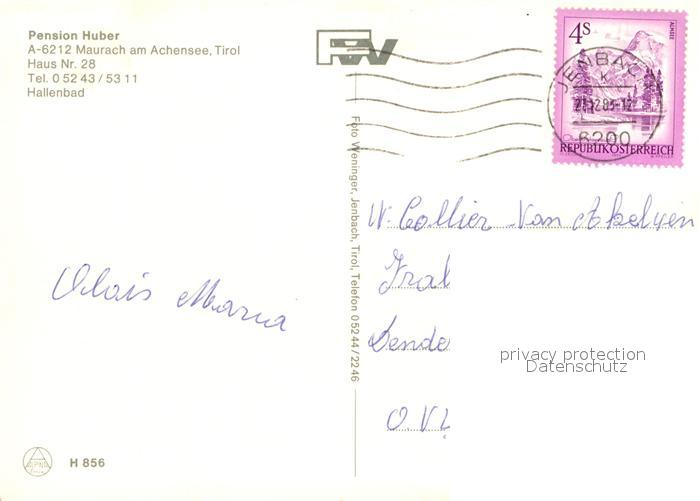 Pension Huber
A-6212 Maurach am Achensee, Tirol
Haus Nr. 28
Tel. 0 52 43 / 53 11
Hallenbad
4S
ALMSEE
REPUBLIK ÖSTERREICH
JENBACH
6200
Foto Weninger, Jenbach, Tirol, Telefon 0 52 44 / 22 46
W. Collier Van
Alois Maria
privacy protection
Datenschutz
H 856